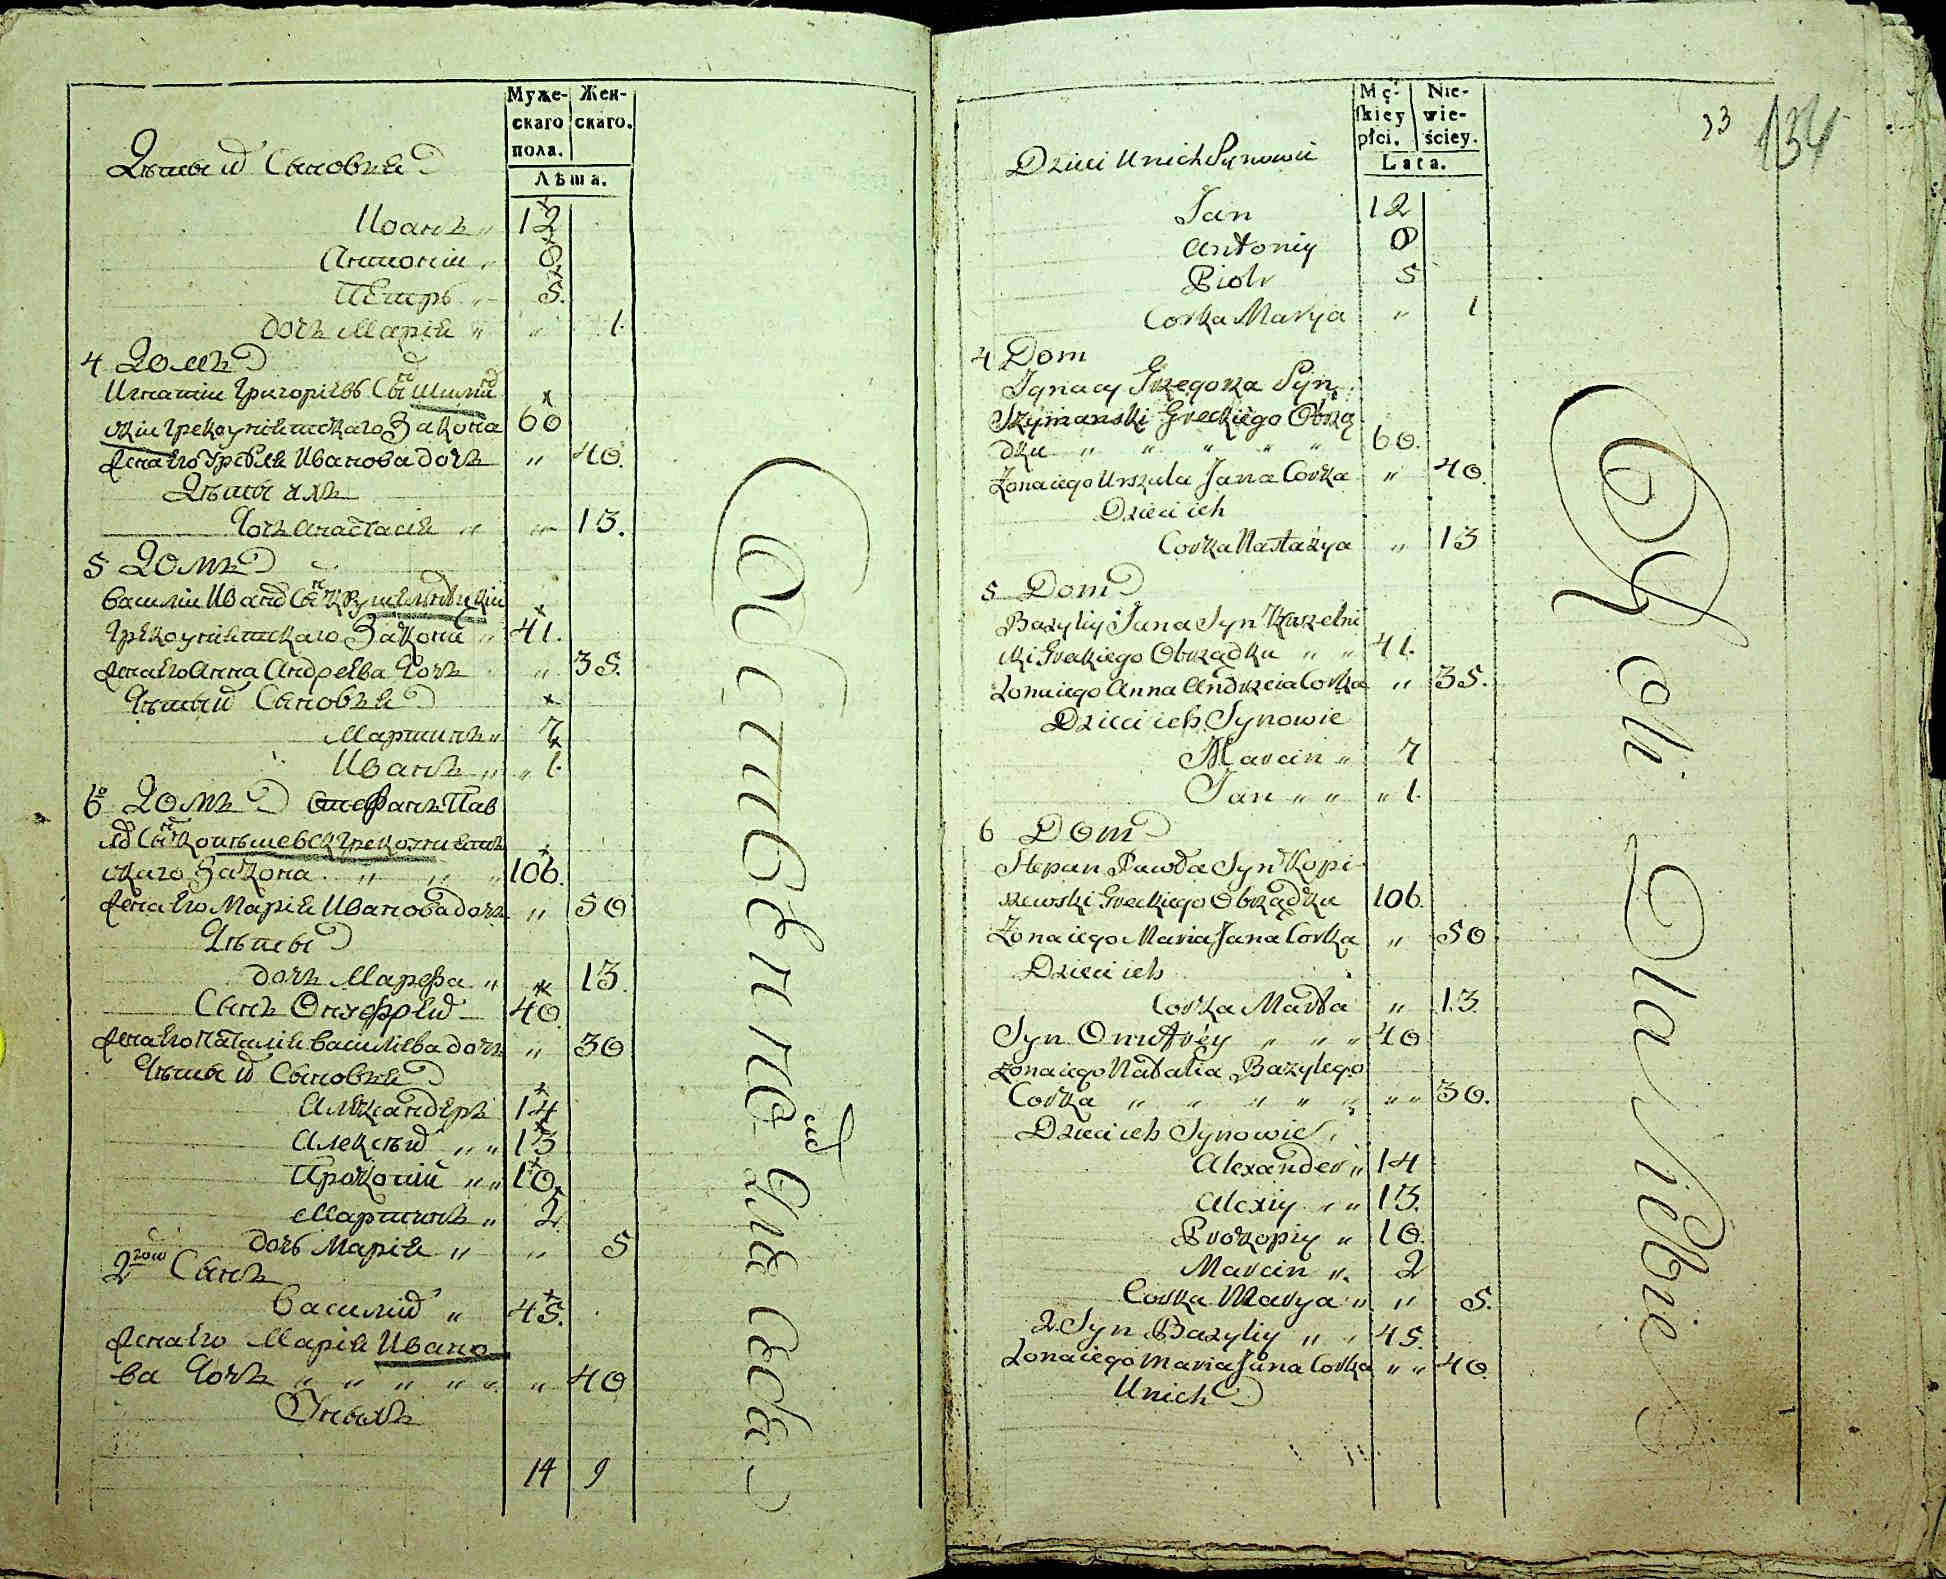 Муже-
скаго
пола.
Жен-
скаго.
Лѣта.
Дѣти Сыновея
Иоанъ " 12
Антоний " 8
Петръ " 5.
дочь Мария " " 1.
4 Домъ
Игнатий Григориевъ Сынъ Шиман
ский Грекоуниятскаго Закона 60
Жена его Иванова дочь " 40.
Дѣти ихъ
Дочь Анастасия " " 13.
5 Домъ
Василий Ивана Сынъ
Грекоуниятскаго Закона " 41.
Жена его Анна Андреева Дочь " 35.
Дѣти Сыновея
Мартинъ " 7
Иванъ " " 1.
6 Домъ Стефанъ Пав
ла Сынъ Грекоуният
скаго Закона " " " 106.
Жена его Мария Иванова дочь " 50
Дѣти
дочь Марфа " 13.
Сынъ Онуфрей 40.
Жена его Наталия Василиева дочь " 30
Дѣти Сыновея
Александеръ 14
Алексѣй " " 13
Прокопий " " 10.
Мартинъ " 2
дочь Мария " " 5
2гой Сынъ
Василий " 45.
Жена его Мария Ивано
ва Дочь " " " " " " 40
У нихъ
14 9
Mę-
skiey
płci.
Nie-
wie-
ściey.
Lata.
33
134
Dzieci Unich Synowie
Jan 12
Antoniy 8
Piotr 5
Corka Marya " 1
4 Dom
Ignacy Grzegorza Syn
Szymanski Greckiego Obrzą
dku " " " " " 60.
Zona iego Urszula Jana Corka " 40.
Dzieci ich
Corka Nastazya " 13
5 Dom
Bazyliy Jana Syn Kuszelni
cki Greckiego Obrządku " " 41.
Zona iego Anna Andrzeia Corka " 35.
Dzieci ich Synowie
Marcin " 7
Jan " " " 1.
6 Dom
Stepan Pawła Syn Kopi
szewski Greckiego Obrządku 106.
Zona iego Maria Jana Corka " 50.
Dzieci ich
Corka Marta " 13.
Syn Onufrey " " " 40
Zona iego Natalia Bazylego
Corka " " " " " " " 30.
Dzieci ich Synowie
Alexander " 14
Alexiy " " 13.
Prokopiy " 10.
Marcin " 2
Corka Marya " " 5.
2. Syn Bazyliy " " 45.
Zona iego Maria Jana Corka " " 40.
Unich